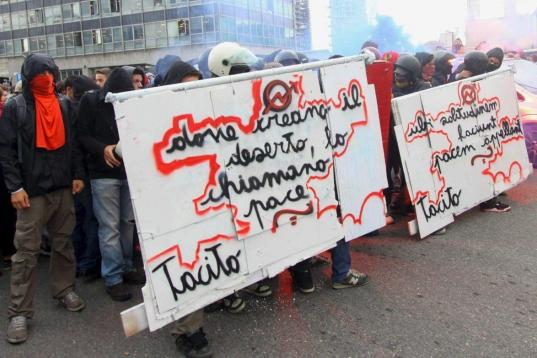 dove creano il
deserto, lo
chiamano
pace
Tacito
ubi solitudinem
faciunt
pacem appellant
Tacito